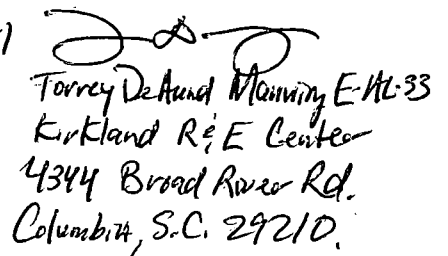 Torrey DeAund Manning E-AL-33
Kirkland R&E Center
4344 Broad River Rd.
Columbia, S.C. 29210.